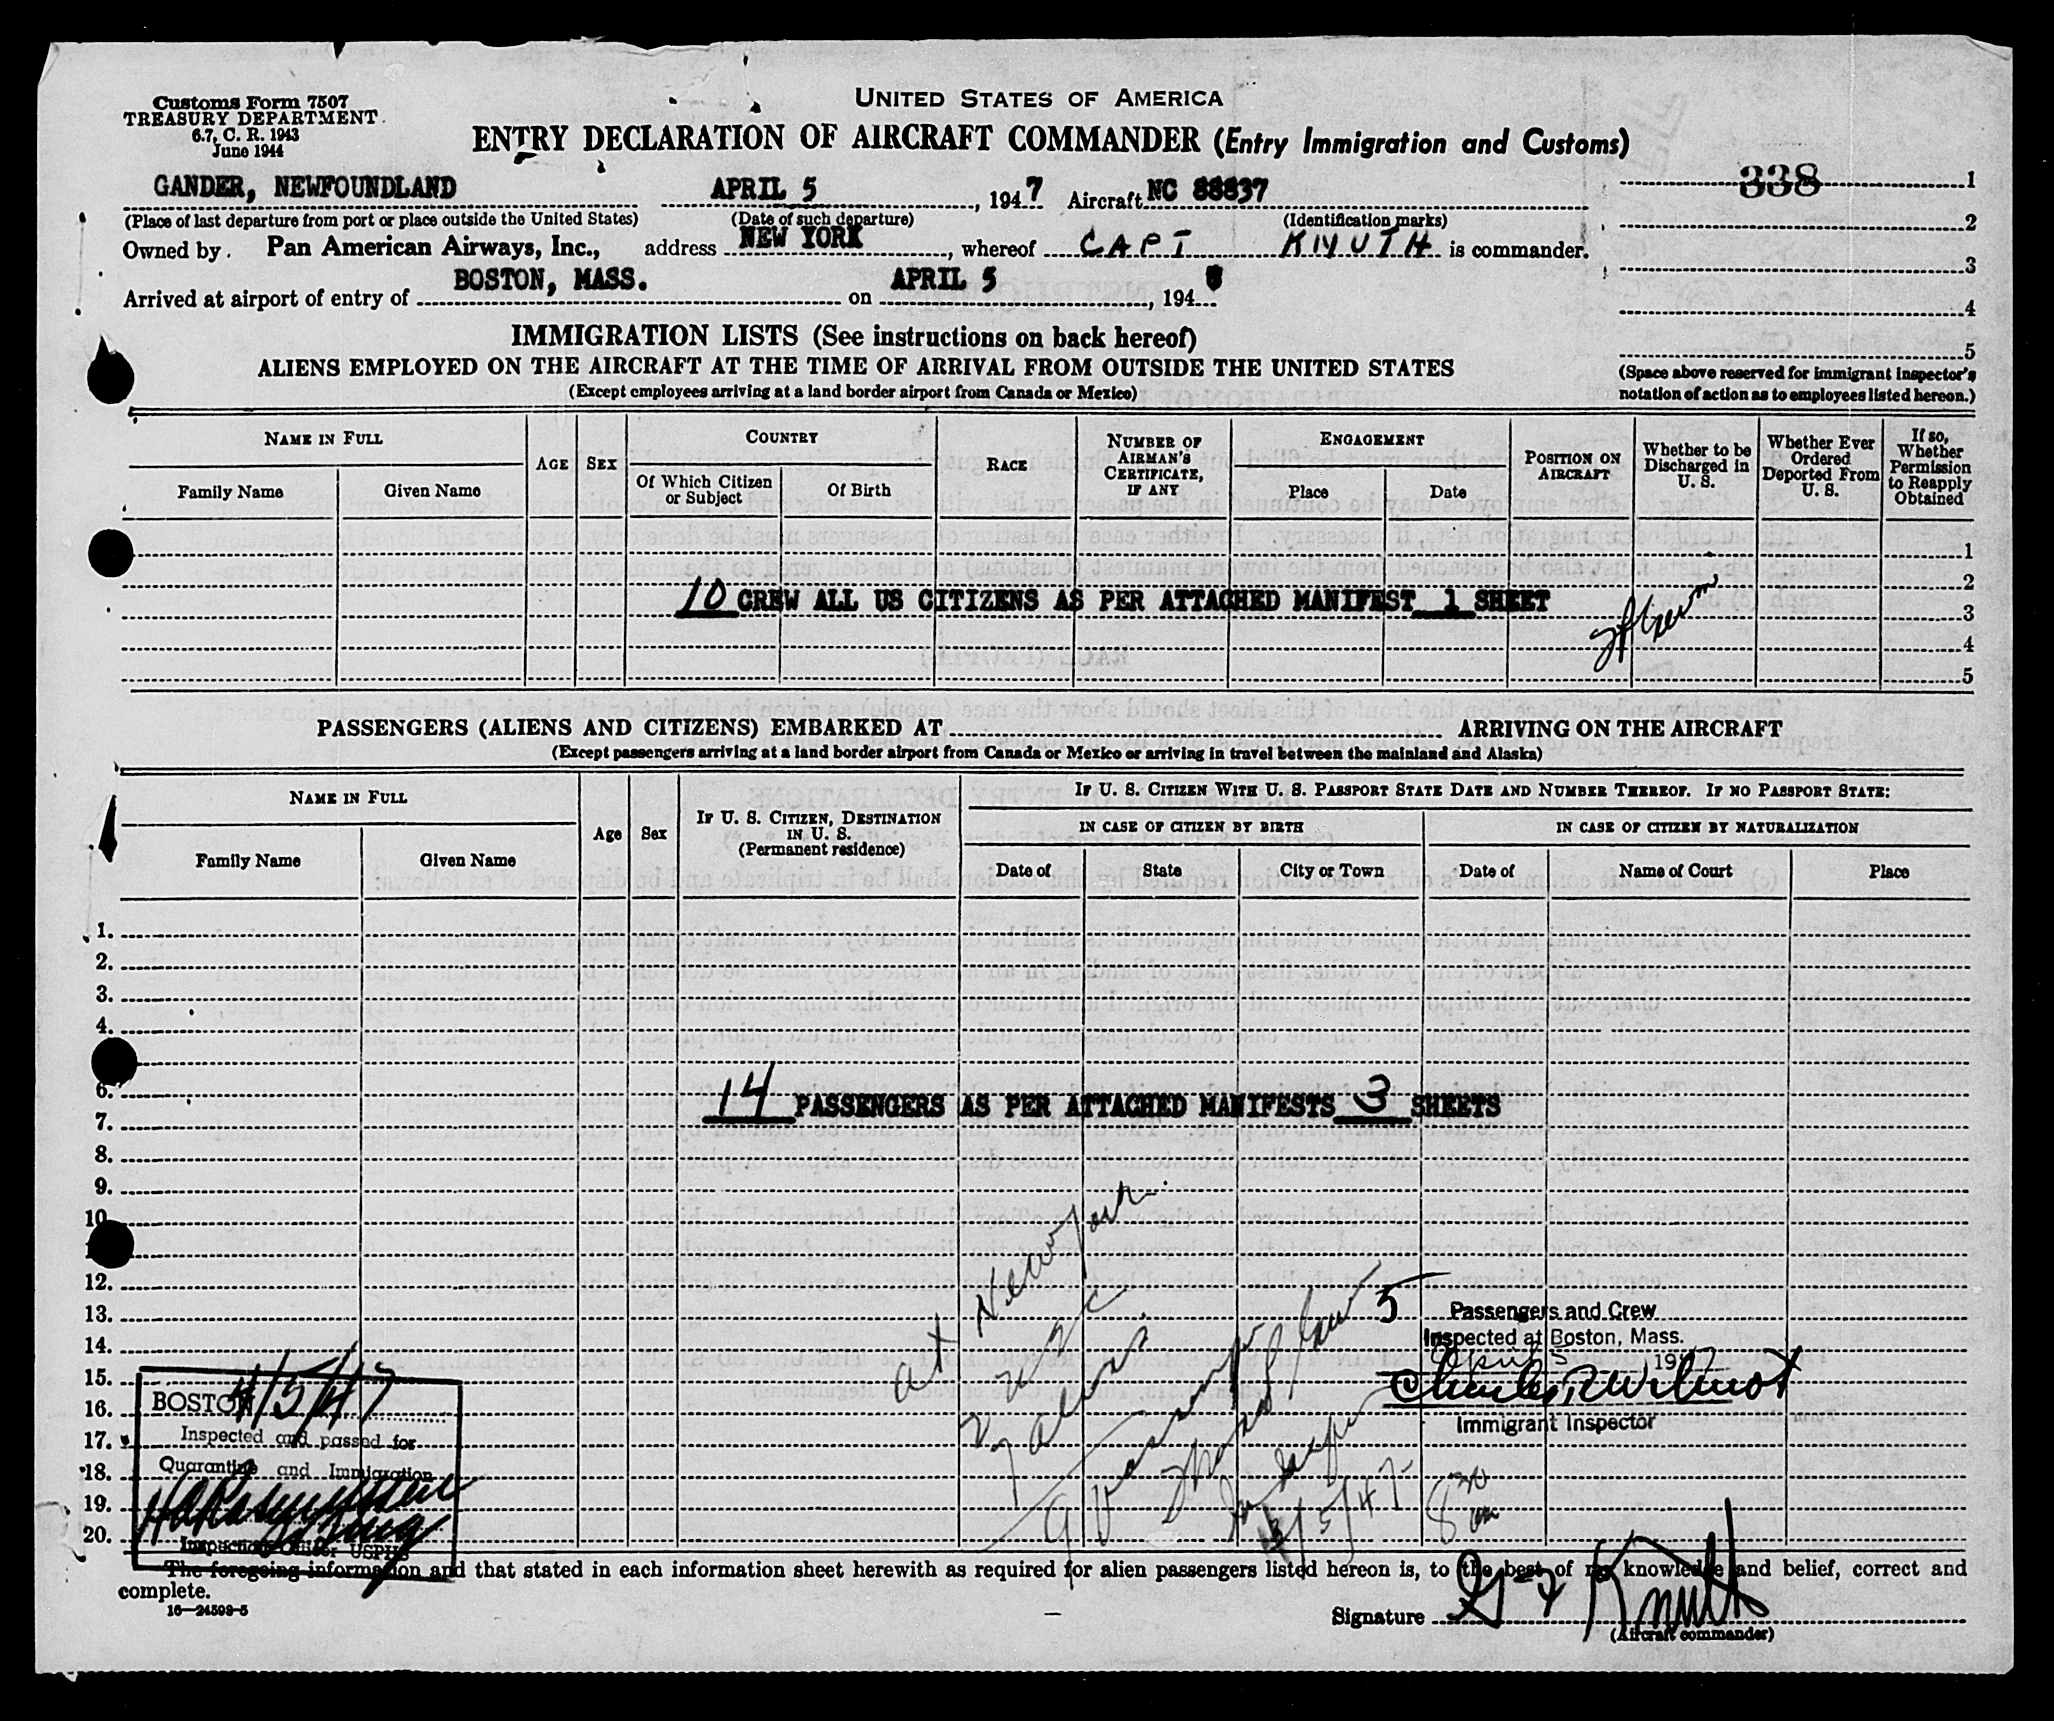 Customs Form 7507
TREASURY DEPARTMENT
6.7, C. R. 1943
June 1944
UNITED STATES OF AMERICA
ENTRY DECLARATION OF AIRCRAFT COMMANDER (Entry Immigration and Customs)
GANDER, NEWFOUNDLAND APRIL 5, 1947 Aircraft NC 88837
(Place of last departure from port or place outside the United States) (Date of such departure) (Identification marks)
Owned by Pan American Airways, Inc., address NEW YORK, whereof CAPT KNUTH is commander.
Arrived at airport of entry of BOSTON, MASS. on APRIL 5, 194
338 1
2
3
4
5
(Space above reserved for immigrant inspector's
notation of action as to employees listed hereon.)
IMMIGRATION LISTS (See instructions on back hereof)
ALIENS EMPLOYED ON THE AIRCRAFT AT THE TIME OF ARRIVAL FROM OUTSIDE THE UNITED STATES
(Except employees arriving at a land border airport from Canada or Mexico)
NAME IN FULL
Family Name
Given Name
AGE
SEX
COUNTRY
Of Which Citizen or Subject
Of Birth
RACE
NUMBER OF AIRMAN'S CERTIFICATE, IF ANY
ENGAGEMENT
Place
Date
POSITION ON AIRCRAFT
Whether to be Discharged in U. S.
Whether Ever Ordered Deported From U. S.
If so, Whether Permission to Reapply Obtained
1
2
10 CREW ALL US CITIZENS AS PER ATTACHED MANIFEST 1 SHEET
3
4
5
PASSENGERS (ALIENS AND CITIZENS) EMBARKED AT ARRIVING ON THE AIRCRAFT
(Except passengers arriving at a land border airport from Canada or Mexico or arriving in travel between the mainland and Alaska)
NAME IN FULL
Family Name
Given Name
Age
Sex
IF U. S. CITIZEN, DESTINATION IN U. S.
(Permanent residence)
IF U. S. CITIZEN WITH U. S. PASSPORT STATE DATE AND NUMBER THEREOF. IF NO PASSPORT STATE:
IN CASE OF CITIZEN BY BIRTH
Date of
State
City or Town
IN CASE OF CITIZEN BY NATURALIZATION
Date of
Name of Court
Place
1.
2.
3.
4.
6.
14 PASSENGERS AS PER ATTACHED MANIFESTS 3 SHEETS
7.
8.
9.
10
12.
13.
14.
15.
16.
17.
18.
19.
20.
at New York
5
Passengers and Crew
Inspected at Boston, Mass.
April 5, 1947
Charles R Wilmot
Immigrant Inspector
4/5/47
8 30
BOSTON 4/5/47
Inspected and passed for
Quarantine and Immigration
Inspection Officer USPHS
The foregoing information and that stated in each information sheet herewith as required for alien passengers listed hereon is, to the best of my knowledge and belief, correct and
complete.
16—24598-5
Signature Knuth
(Aircraft commander)